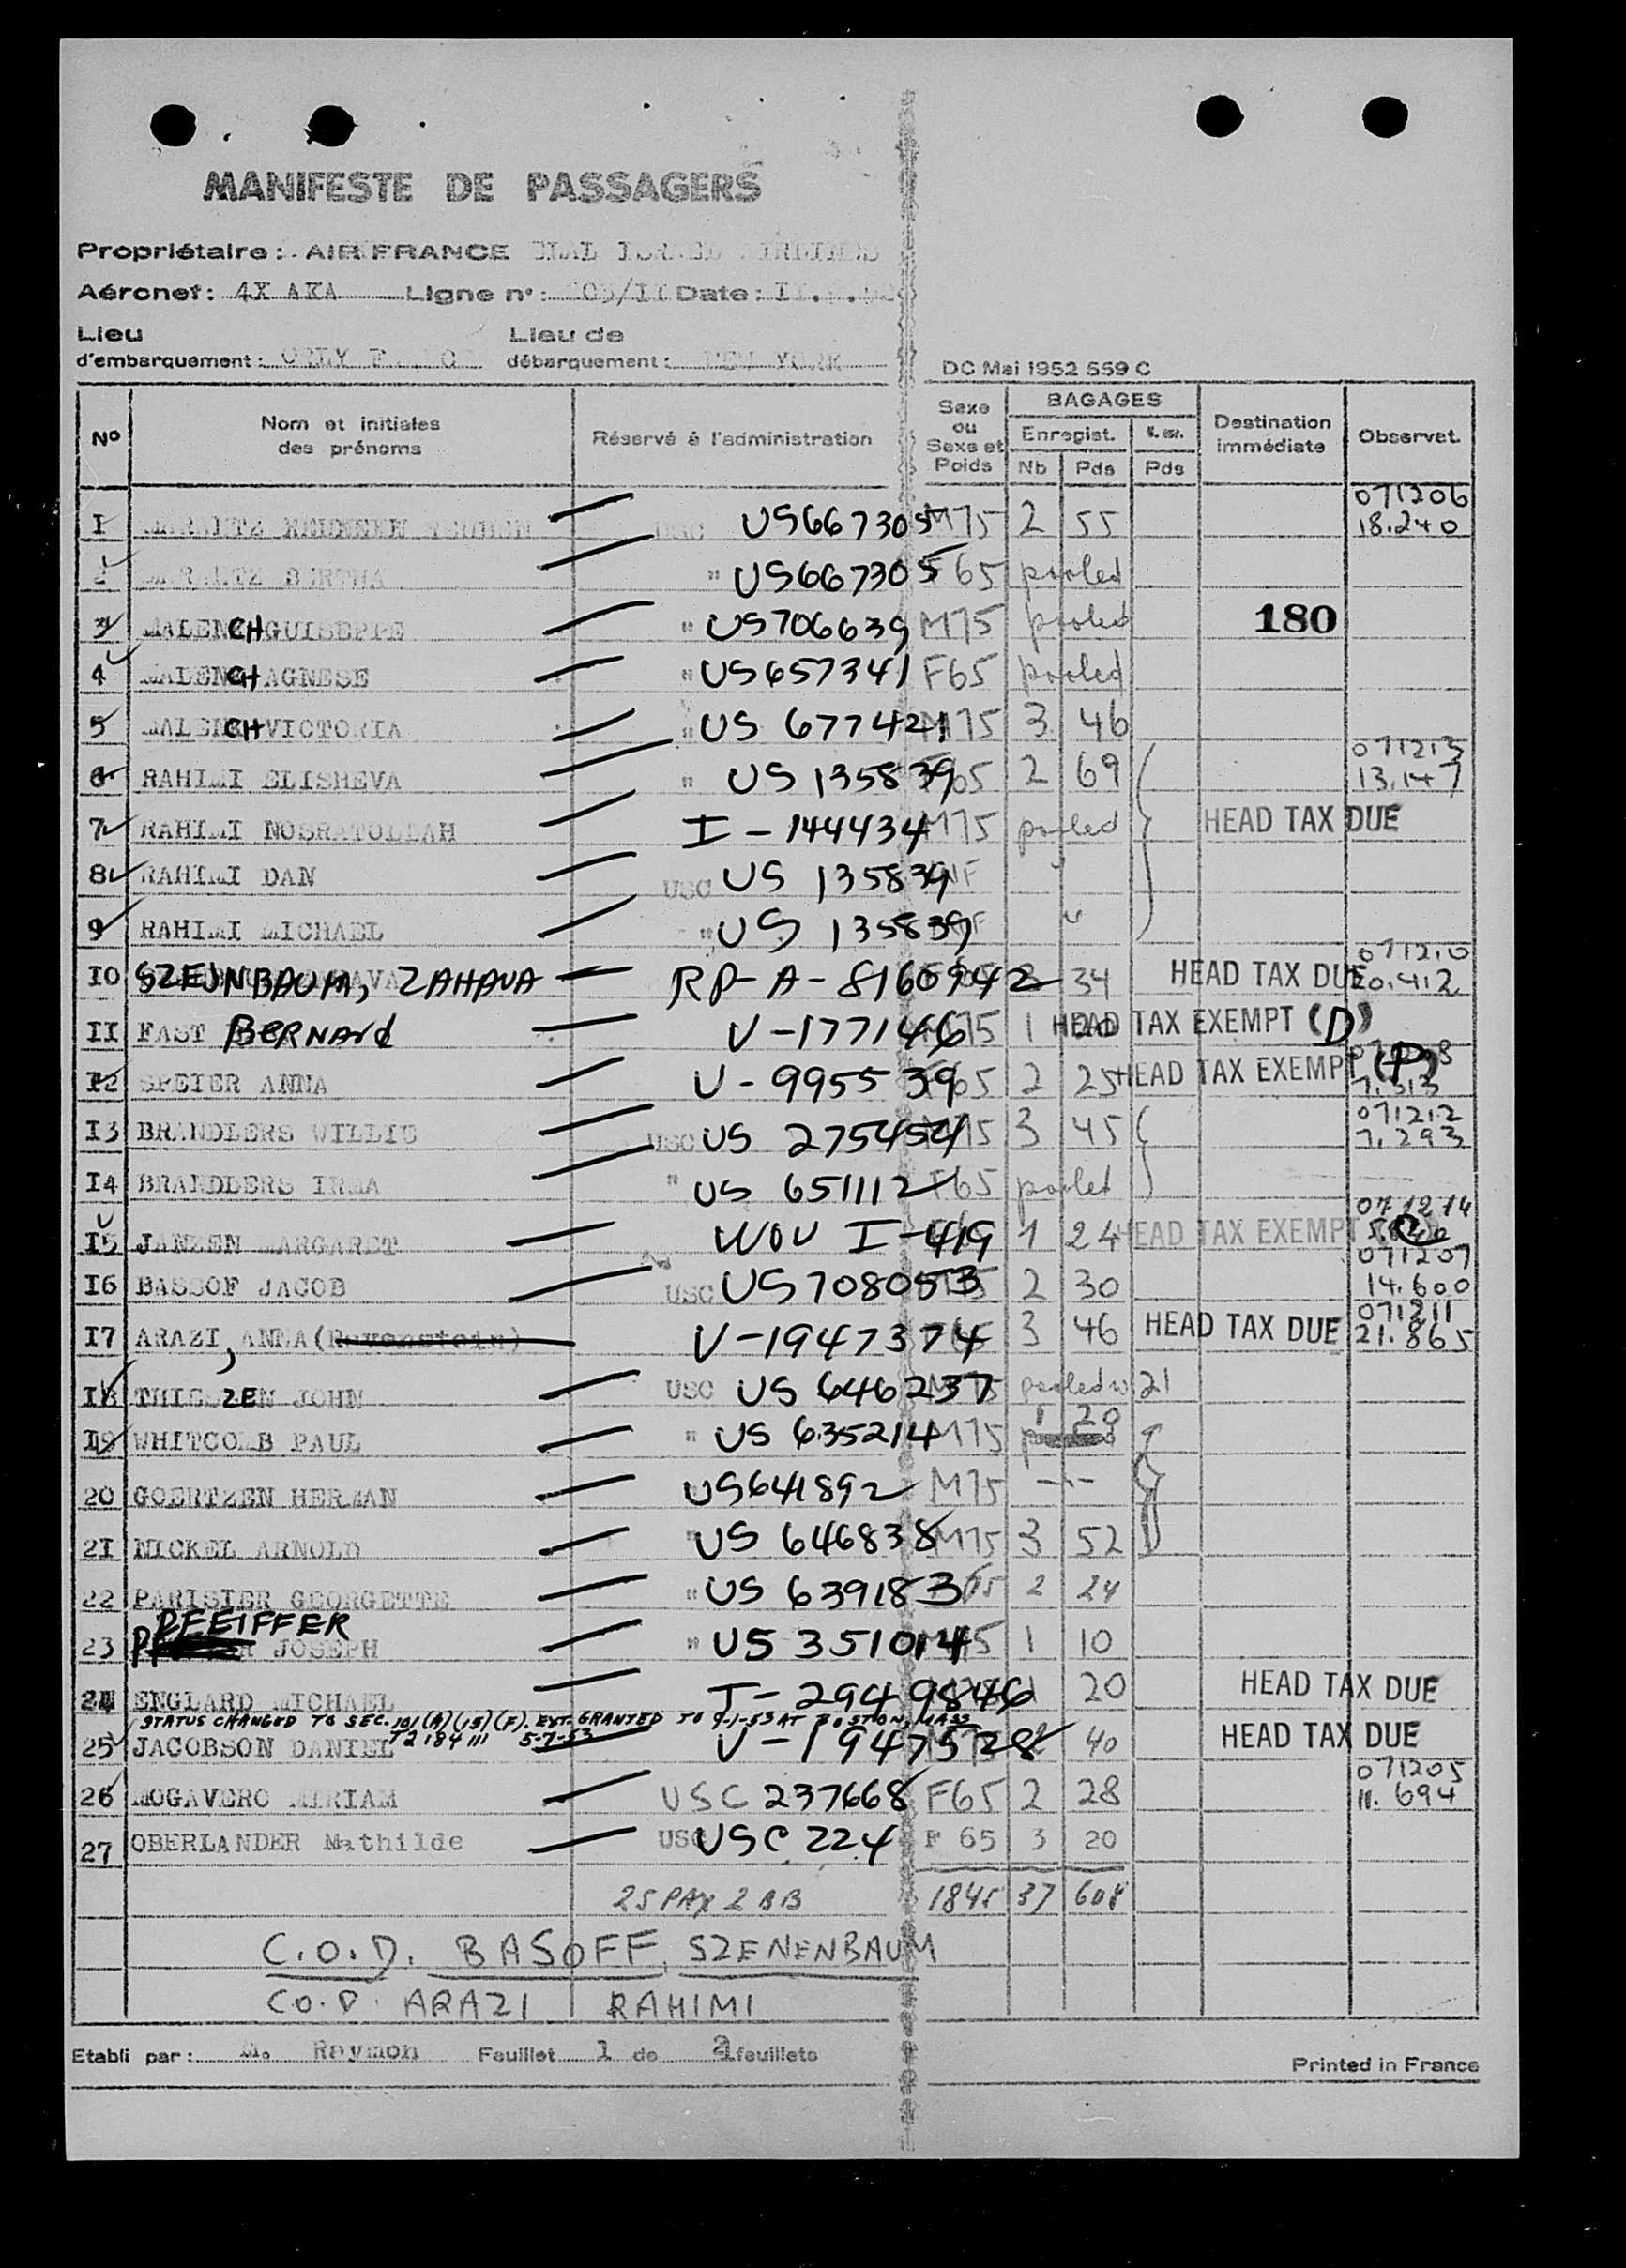 MANIFESTE DE PASSAGERS
Propriétaire: AIR FRANCE ISRAEL AIRLINES
Aéronef: 4X AKA Ligne n°: Date:
Lieu d'embarquement: ORLY Lieu de débarquement: NEW YORK
DC Mai 1952 559 C
N° Nom et initiales des prénoms Réservé à l'administration Sexe ou Sexe et Poids BAGAGES Enregist. Nb Pds Pds Destination immédiate Observat.
071206
I US667305 M75 2 55 18.240
BERTHA " US667305 F65 pooled
3 MALENCH GUISEPPE " US706639 M75 pooled 180
4 MALENCH AGNESE " US657341 F65 pooled
5 MALENCH VICTORIA " US 677421 M75 3 46
071213
6 RAHIMI ELISHEVA " US 135839 F65 2 69 13.147
7 RAHIMI NOSRATOLLAH I-144434 M75 pooled HEAD TAX DUE
8 RAHIMI DAN USC US 135839 INF "
9 RAHIMI MICHAEL " US 135839 "
071210
IO SZEJNBAUM, ZAHAVA RP-A-8160942 34 HEAD TAX DUE 20.412
II FAST BERNARD V-1771446 M75 1 20 HEAD TAX EXEMPT (D)
I2 SPEIER ANNA V-995539 F65 2 25 HEAD TAX EXEMPT (P)
071212
I3 BRANDLERS WILLIS USC US 275454 M75 3 45 7.293
I4 BRANDLERS IRMA " US 651112 F65 pooled
071214
I5 JANZEN MARGARET WOV I-419 1 24 HEAD TAX EXEMPT (C)
071207
I6 BASSOF JACOB USC US708053 2 30 14.600
071211
I7 ARAZI, ANNA V-1947374 3 46 HEAD TAX DUE 21.865
I8 THIESZEN JOHN USC US 646237 M75 pooled w 21
1 20
I9 WHITCOMB PAUL " US 635214 M75
20 GOERTZEN HERMAN US641892 M75 -"-
2I NICKEL ARNOLD " US 646838 M75 3 52
22 PARISIER GEORGETTE " US 639183 F65 2 24
PFEIFFER
23 JOSEPH " US 351014 M75 1 10
24 ENGLARD MICHAEL I-2949846 1 20 HEAD TAX DUE
STATUS CHANGED TO SEC. 101(A)(15)(F). EXT. GRANTED TO 9-1-53 AT BOSTON, MASS
T2184111 5-7-53
25 JACOBSON DANIEL V-1947528 2 40 HEAD TAX DUE
071205
26 MOGAVERO MIRIAM USC 237668 F65 2 28 11.694
27 OBERLANDER Mathilde USC USC 224 F 65 3 20
25 PAX 2 BB 1845 37 608
C.O.D. BASOFF, SZENENBAUM
C.O.D. ARAZI RAHIMI
Etabli par: M. Raymon Feuillet 1 de 2 feuillets
Printed in France